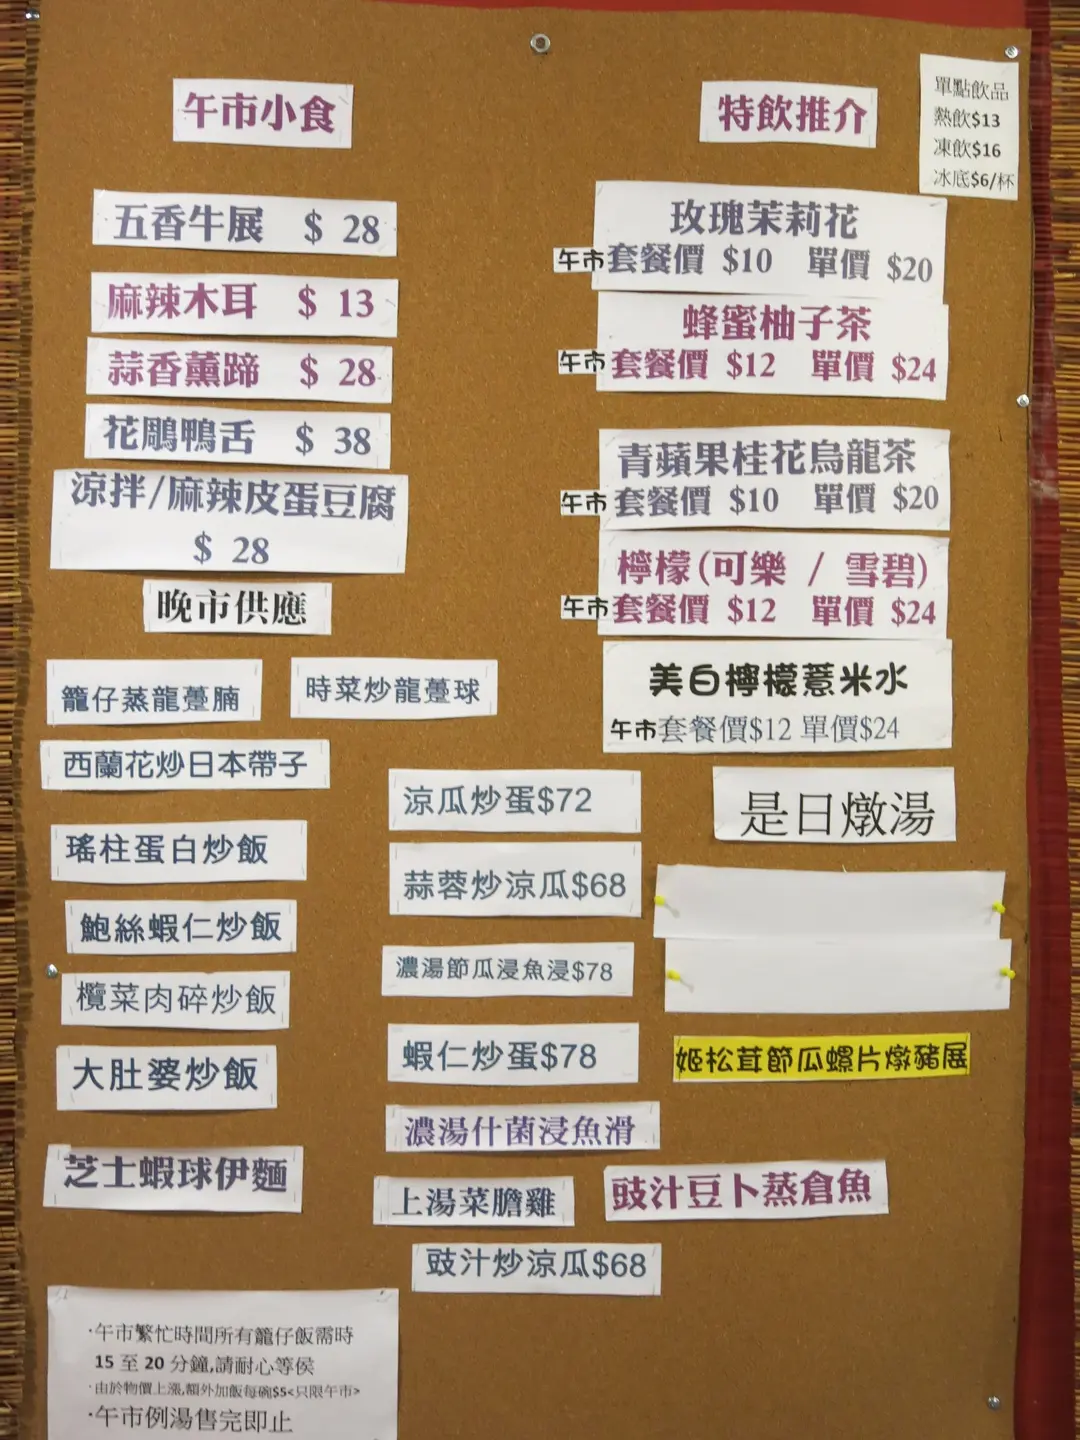 午市小食
五香牛展 $ 28
麻辣木耳 $ 13
蒜香薰蹄 $ 28
花鵰鴨舌 $ 38
涼拌/麻辣皮蛋豆腐
$ 28
特飲推介
單點飲品
熱飲$13
凍飲$16
冰底$6/杯
玫瑰茉莉花
午市套餐價 $10 單價 $20
蜂蜜柚子茶
午市套餐價 $12 單價 $24
青蘋果桂花烏龍茶
午市套餐價 $10 單價 $20
檸檬(可樂 / 雪碧)
午市套餐價 $12 單價 $24
美白檸檬薏米水
午市套餐價$12 單價$24
晚市供應
籠仔蒸龍躉腩
時菜炒龍躉球
西蘭花炒日本帶子
瑤柱蛋白炒飯
鮑絲蝦仁炒飯
欖菜肉碎炒飯
大肚婆炒飯
芝士蝦球伊麵
涼瓜炒蛋$72
蒜蓉炒涼瓜$68
濃湯節瓜浸魚浸$78
蝦仁炒蛋$78
濃湯什菌浸魚滑
上湯菜膽雞
豉汁豆卜蒸倉魚
豉汁炒涼瓜$68
是日燉湯
姬松茸節瓜螺片燉豬展
·午市繁忙時間所有籠仔飯需時
15 至 20 分鐘,請耐心等侯
·由於物價上漲,額外加飯每碗$5<只限午市>
·午市例湯售完即止